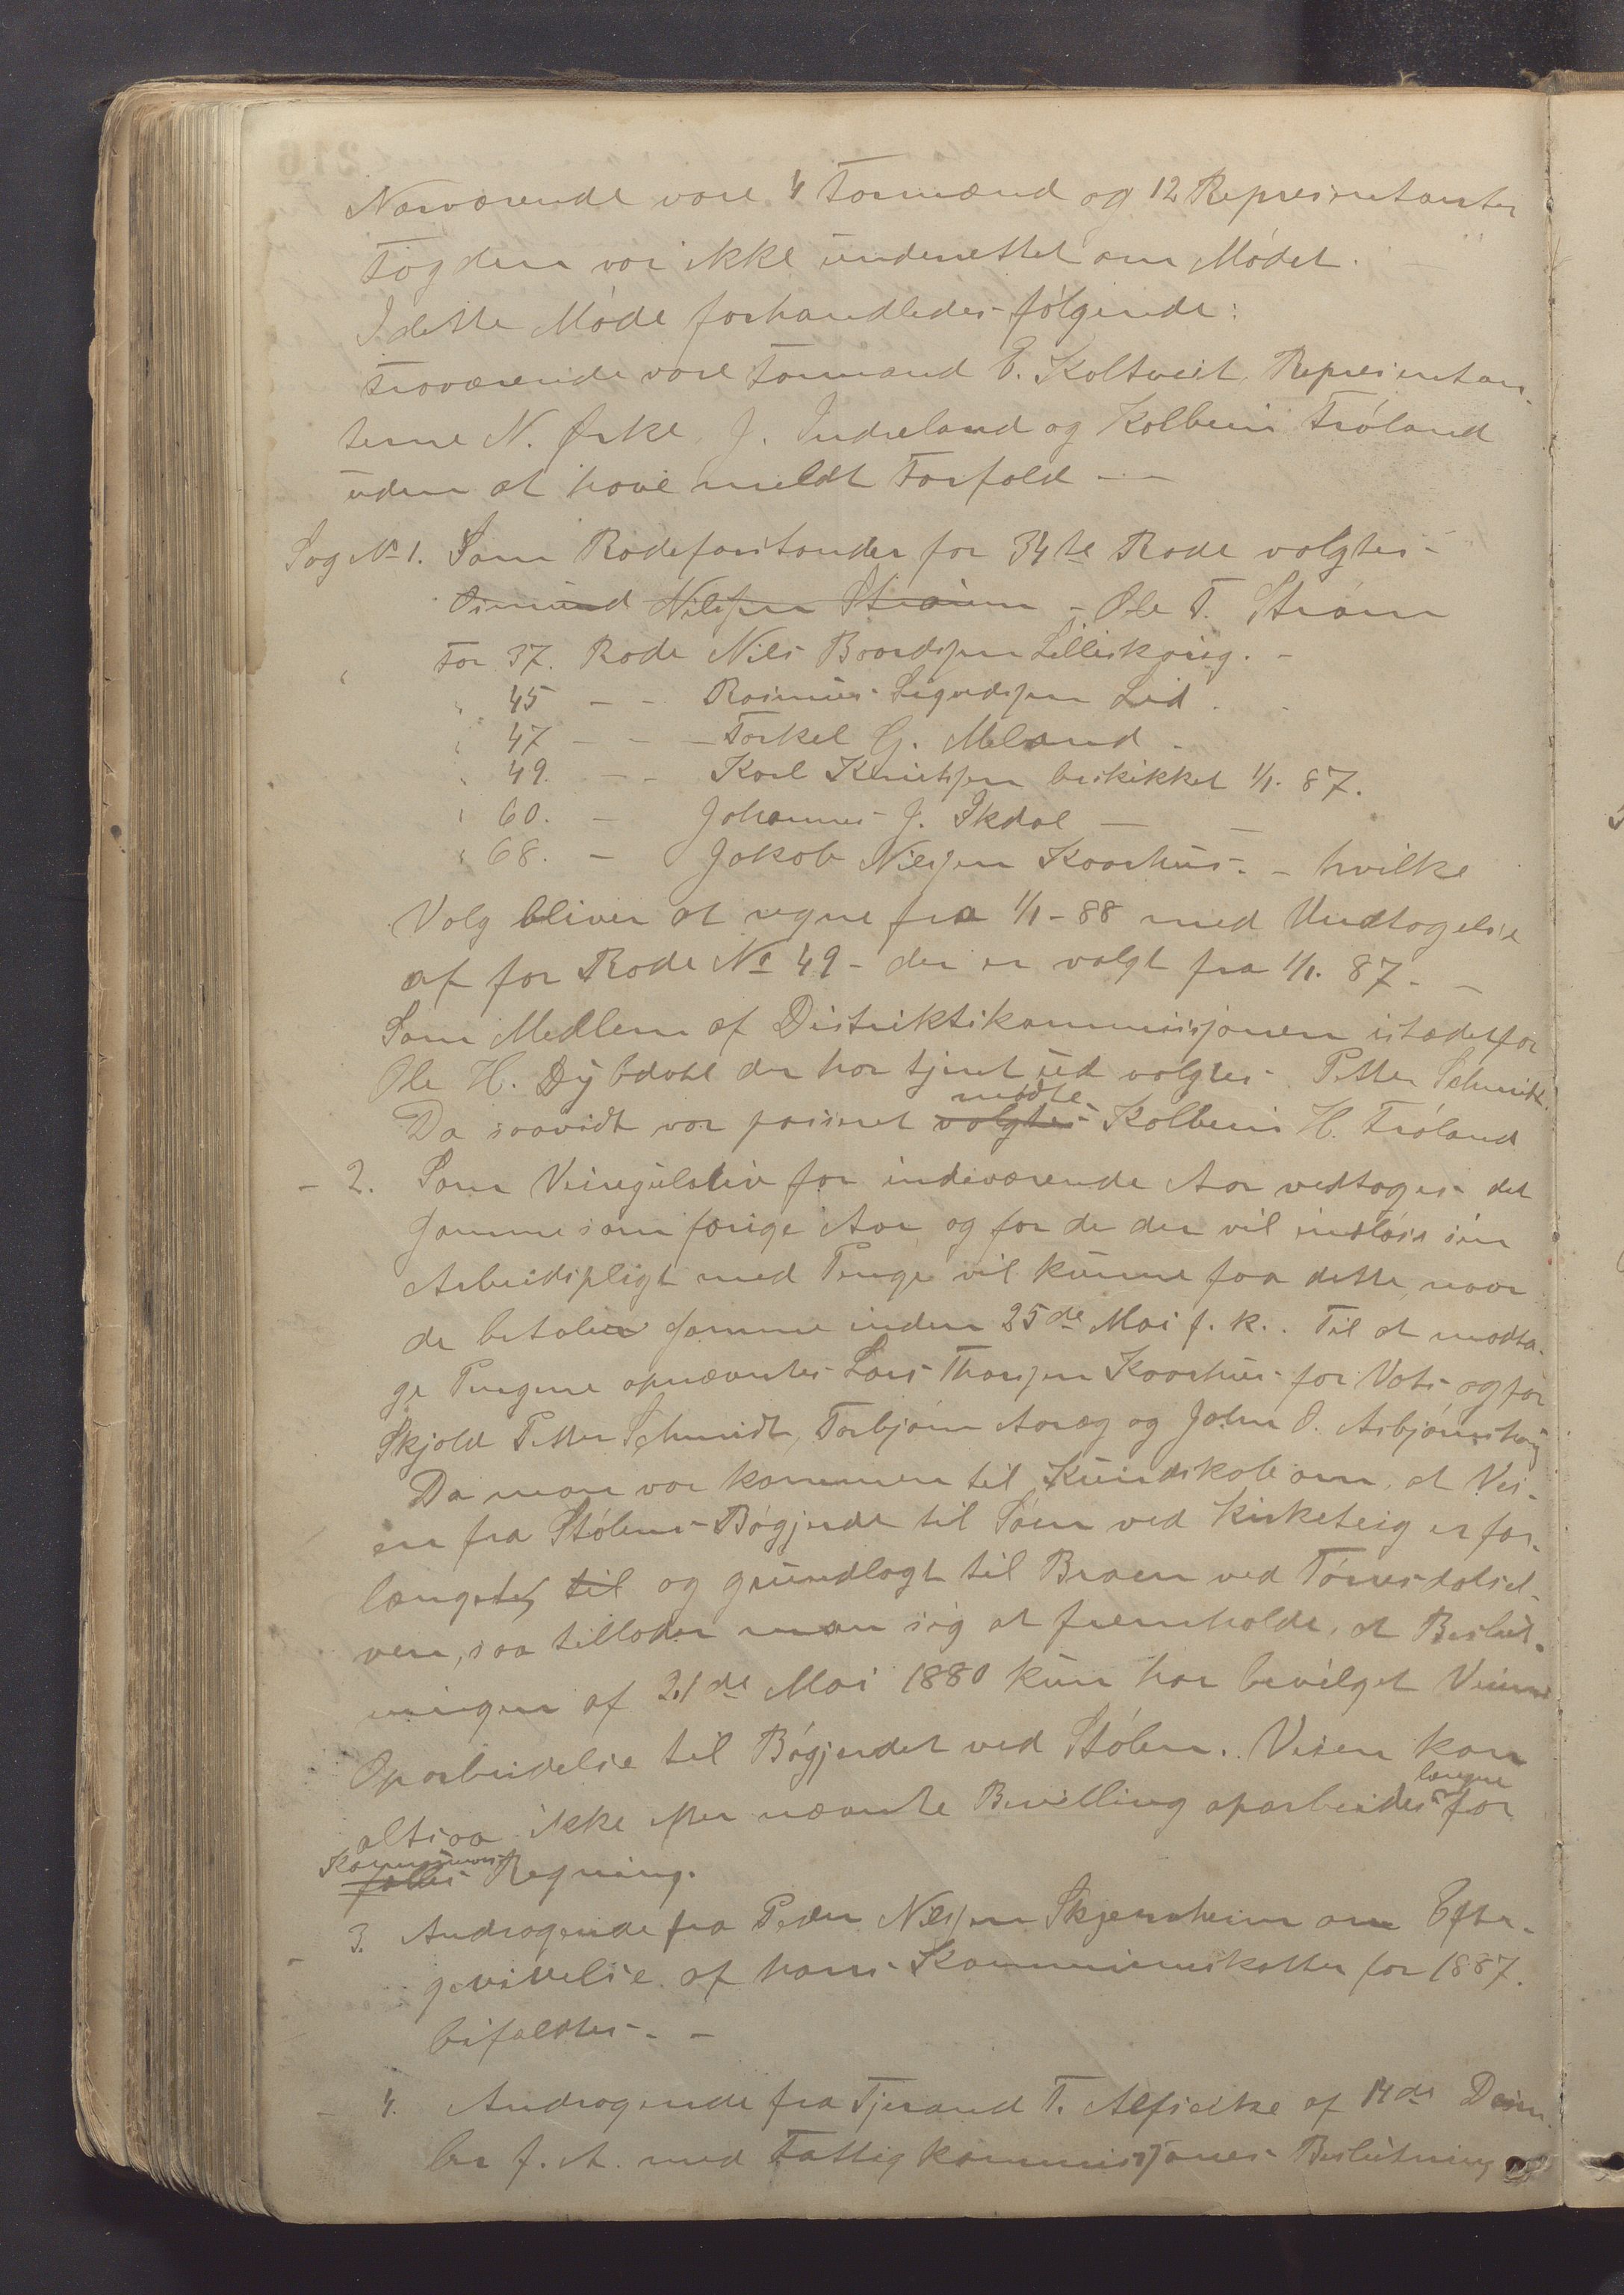 Nærværende vare 4 Formænd og 12 Representanter
Fogden var ikke underrettet om Mødet.
I dette Møde forhandledes følgende:
Fraværende vare Formand T. Koltveit, Representan-
terne N. Ørke, J. Indreland og Kolbein Frøland
uden at have meldt Forfald —
Sag No 1. Som Rodeforstander for 34te Rode valgtes
Osmund Nilssen Straum - Ole T. Straum
For 37. Rode Nils Baardssen Lilleskog. -
" 45 - - Rasmus Sigurdssen Lid.
" 47 - - - Torkel G. Meland -
" 49. - - Karl Knudssen beskikket 1/1. 87.
" 60. - Johannes J. Ilsdal —
" 68. - Jakob Nilssen Kaarhus - hvilke
Valg bliver at regne fra 1/1-88 med Undtagelse
af for Rode No 49 - der er valgt fra 1/1. 87. -
Som Medlem af Distriktskommissjonen istædetfor
Ole H. Dybdahl der har tjent ud valgtes Petter Schmidt.
mødte
Da saavidt var passeret valgtes Kolbein H. Frøland
- 2. Som Veiregulativ for indeværende Aar vedtoges det
samme som forige Aar og for de der vil indløse sin
Arbeidspligt med Penge vil kunne faa dette, naar
de betaler samme inden 25de Mai f. k.. Til at modta-
ge Pengene opnævntes Lars Thorsen Kaarhus for Vats og for
Skjold Petter Schmidt, Torbjørn Aaræg og John O. Asbjørnshaug
Da man var kommen til Kundskab om, at Vei-
en fra Stølens Bøgjerde til Søen ved Kirketeig er for-
længetes til og grundlagt til Broen ved Tørresdalsel-
ven, saa tillader man sig at fremholde, at Beslut-
ningen af 21de Mai 1880 kun har bevilget Veiens
Oparbeidelse til Bøgjerdet ved Stølen. Veien kan
længere
altsaa ikke efter nævnte Bevilling oparbeides for
Kommunens
fælles Regning.
3. Andragende fra Peder Nilssen Skjensheim om Efter-
givelse af hans Kommuneskatter for 1887.
bifaldtes. -
- 4. Andragende fra Tjerand T. Alfseike af 14de Decem-
ber f. A. med Fattigkommissjonens Beslutning